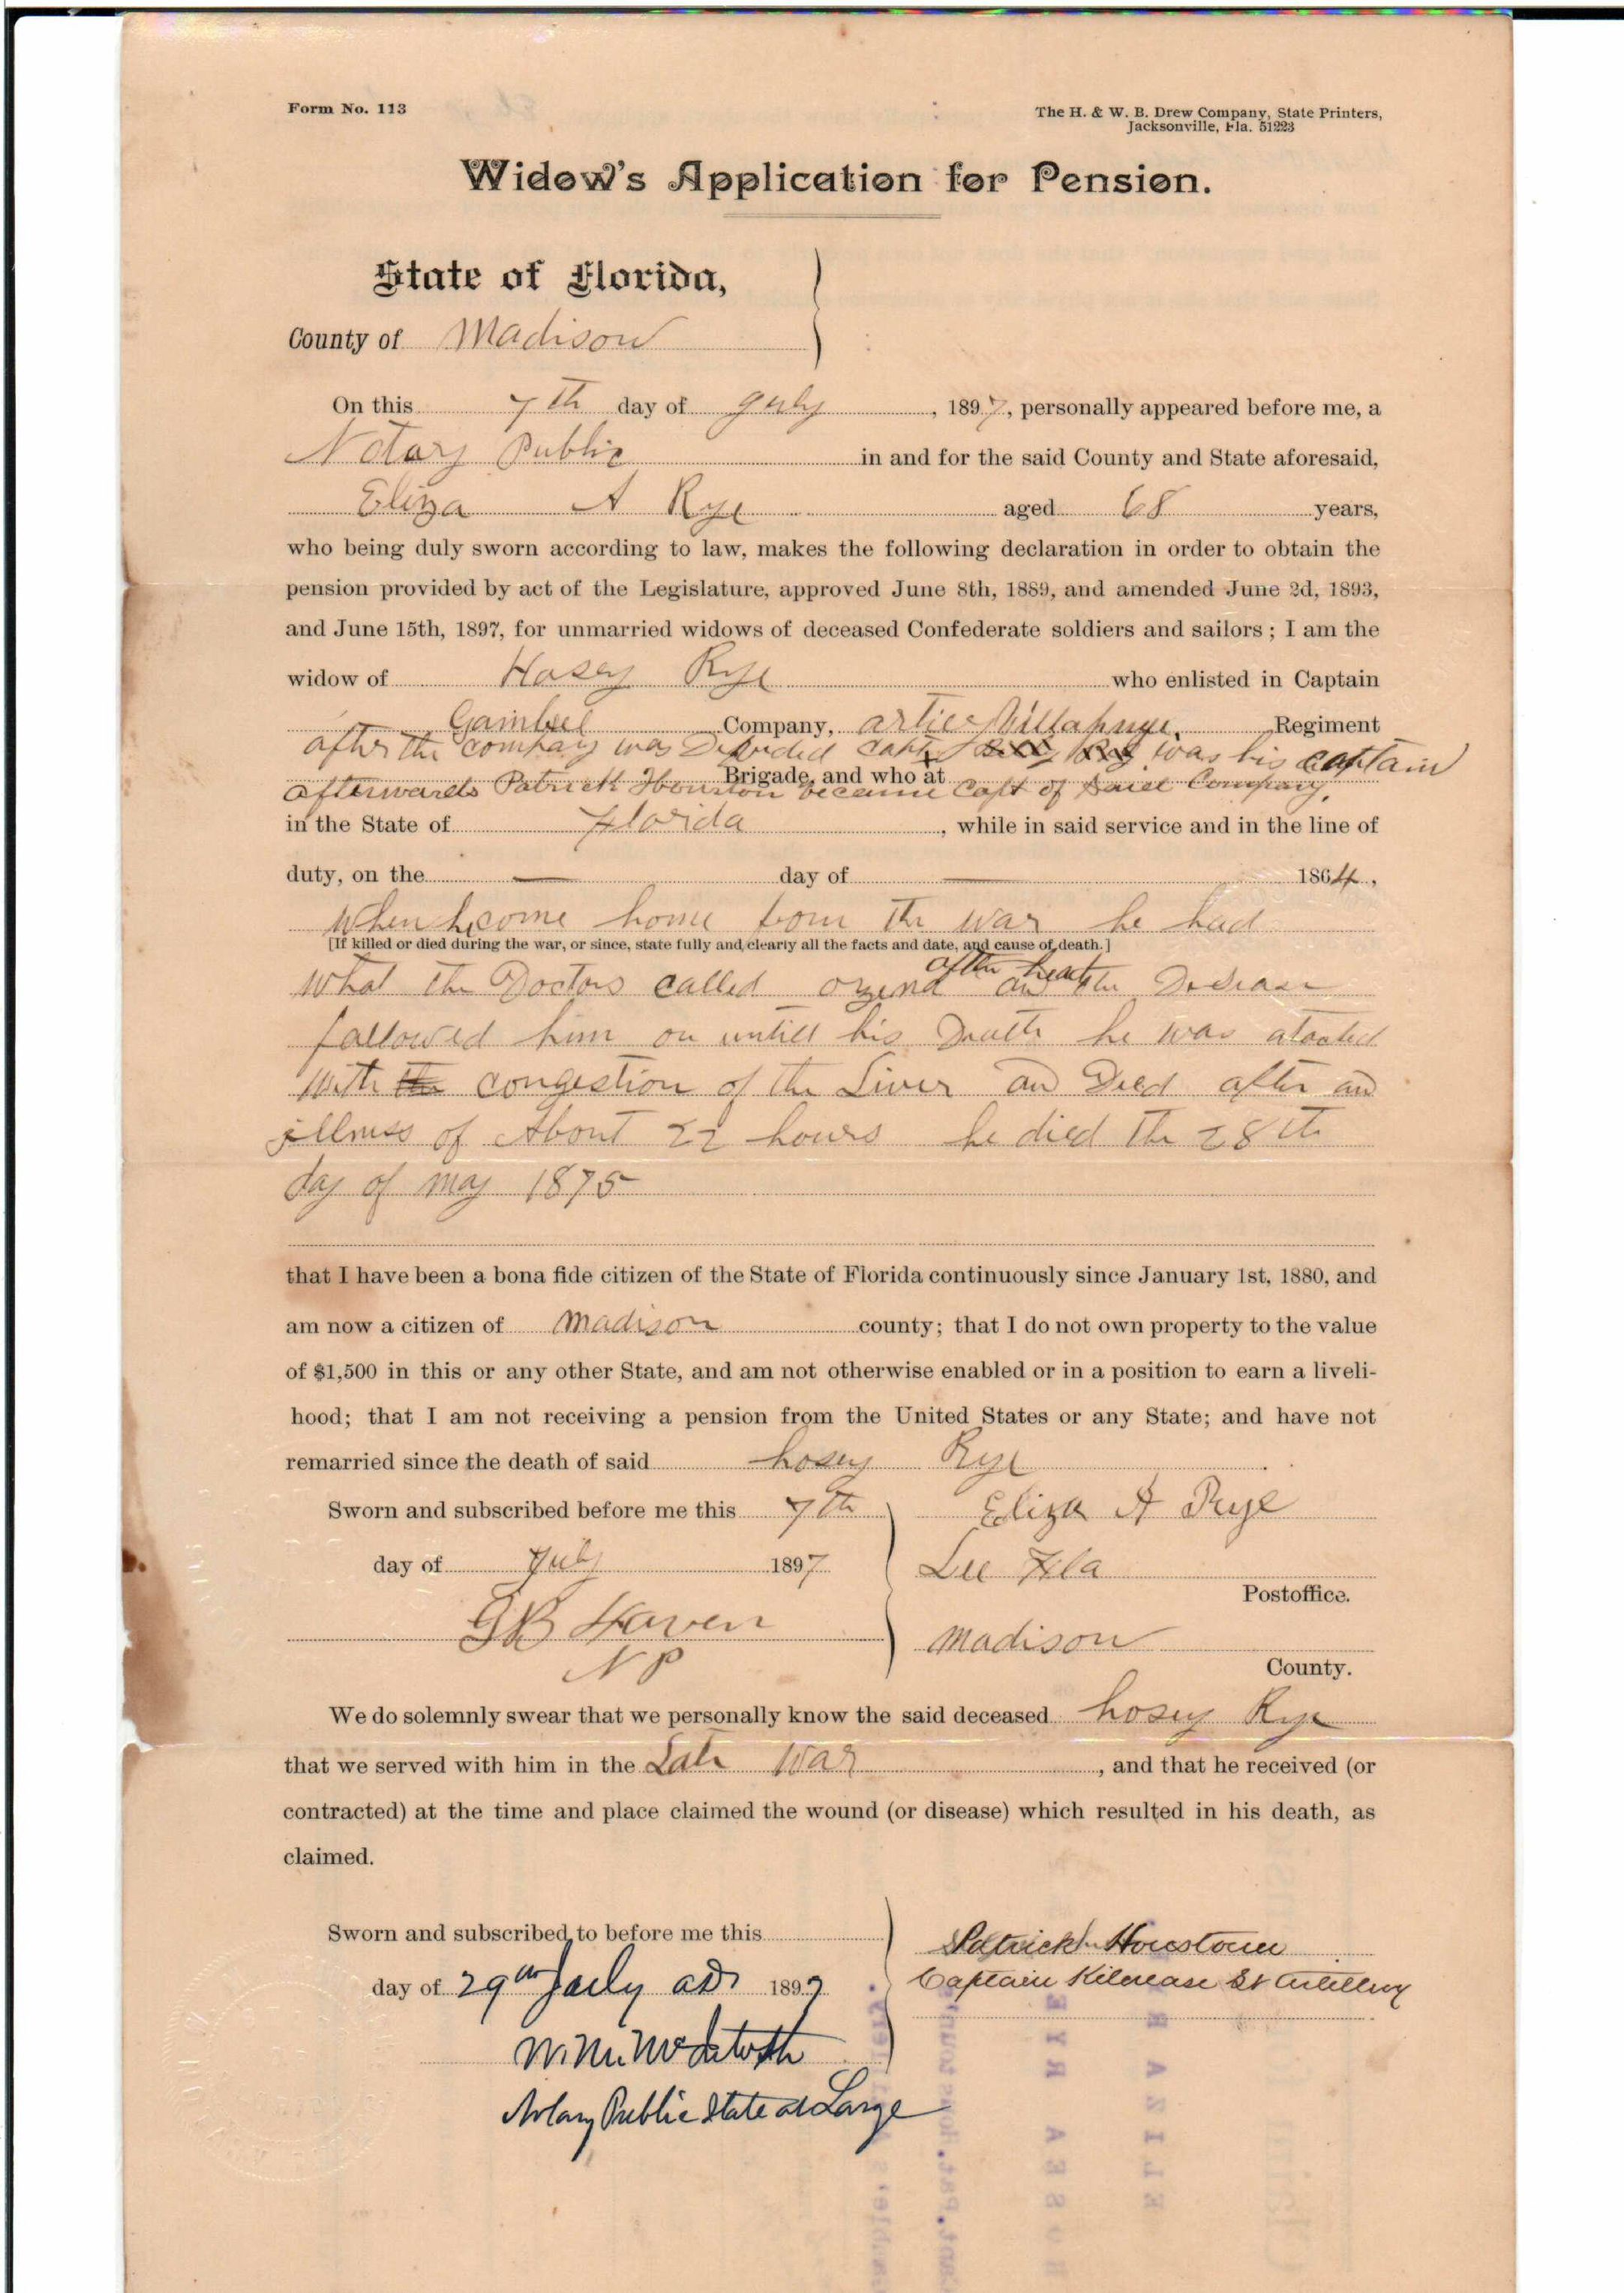 Form No. 113
The H. & W. B. Drew Company, State Printers,
Jacksonville, Fla. 51223
Widow's Application for Pension.
State of Florida,
County of Madison
On this 7th day of July, 1897, personally appeared before me, a
Notary Public in and for the said County and State aforesaid,
Eliza A Rye aged 68 years,
who being duly sworn according to law, makes the following declaration in order to obtain the
pension provided by act of the Legislature, approved June 8th, 1889, and amended June 2d, 1893,
and June 15th, 1897, for unmarried widows of deceased Confederate soldiers and sailors; I am the
widow of Hosey Rye who enlisted in Captain
Gambrel Company, Regiment
after the company was capt was his captain
Brigade, and who at
afterwards Patrick Houston became Capt of Company,
in the State of Florida, while in said service and in the line of
duty, on the — day of — 1864,
When h come home from the war he had
[If killed or died during the war, or since, state fully and clearly all the facts and date, and cause of death.]
after
what the Doctors called an the
followed him on untill his Death he was
with the congestion of the Liver an Died after an
illness of About 22 hours he died the 28th
day of may 1875
that I have been a bona fide citizen of the State of Florida continuously since January 1st, 1880, and
am now a citizen of Madison county; that I do not own property to the value
of $1,500 in this or any other State, and am not otherwise enabled or in a position to earn a liveli-
hood; that I am not receiving a pension from the United States or any State; and have not
remarried since the death of said hosey Rye
Sworn and subscribed before me this 7th Eliza A Rye
day of July 1897 Lee Fla
Postoffice.
G B Haven Madison
N P County.
We do solemnly swear that we personally know the said deceased hosey Rye
that we served with him in the Late War, and that he received (or
contracted) at the time and place claimed the wound (or disease) which resulted in his death, as
claimed.
Sworn and subscribed to before me this Patrick Houstoun
day of 29th July AD 1897 Captain Kilcrease Lt Artillery
W. M. McIntosh
Notary Public State at Large